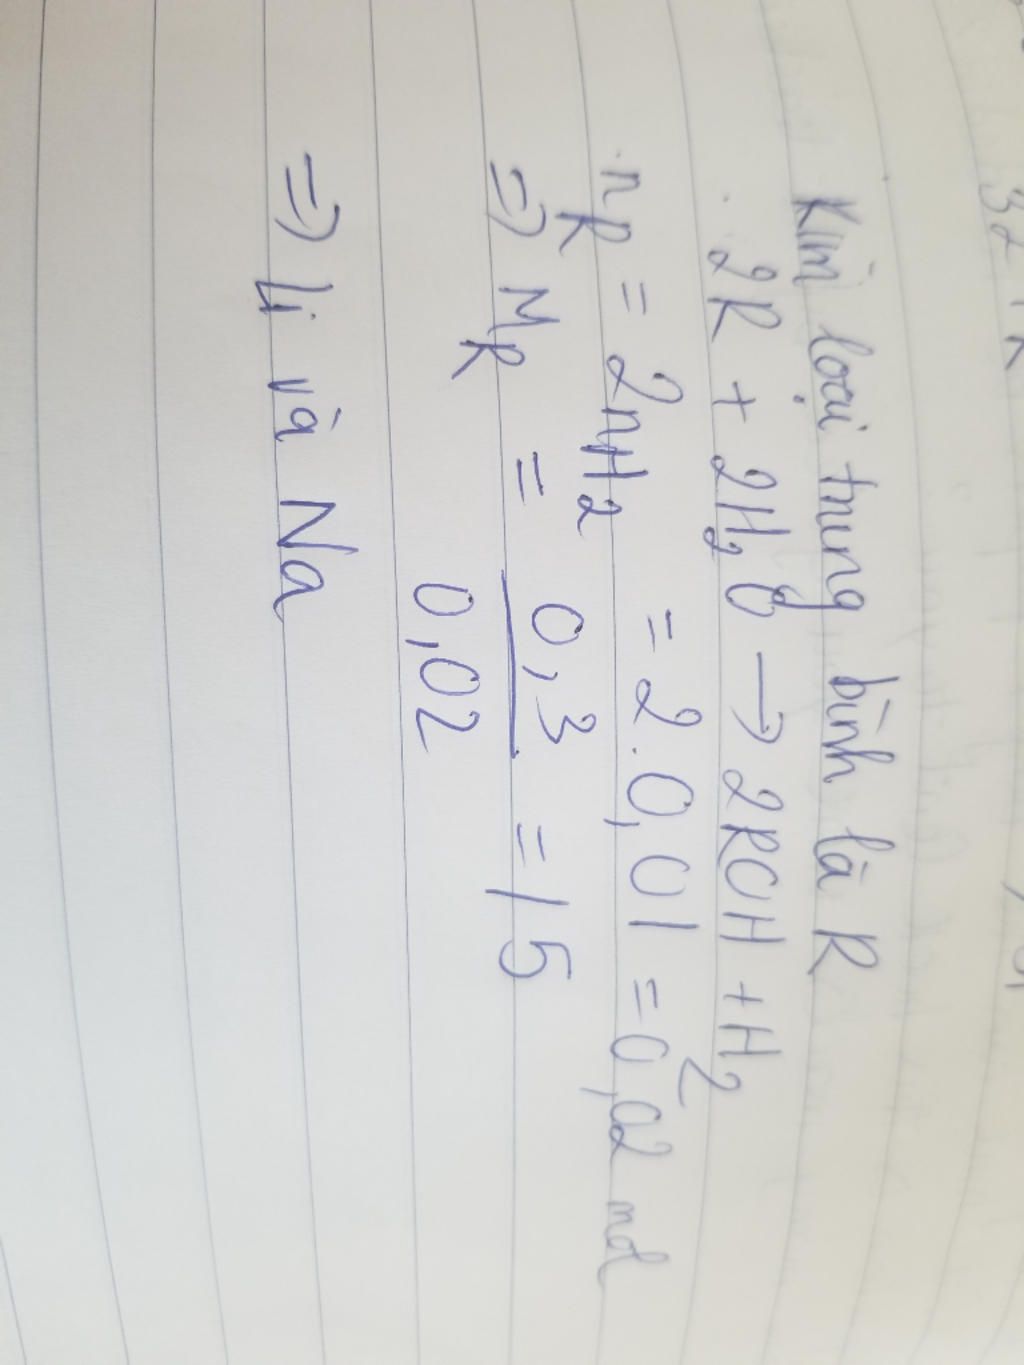 Kim loại trung bình là R
2R + 2H₂O → 2ROH + H₂
nR = 2nH₂ = 2.0,01 = 0,02 mol
=> MR = 0,3/0,02 = 15
=> Li và Na